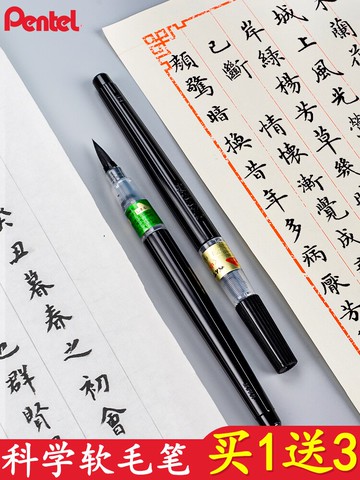 Pentel
蘭花
城上風光
岸綠楊芳草幾
已斷情懷漸覺成
顏驚暗換昔年多病厭芳
丑暮春之初會
也群賢
科学软毛笔
买1送3